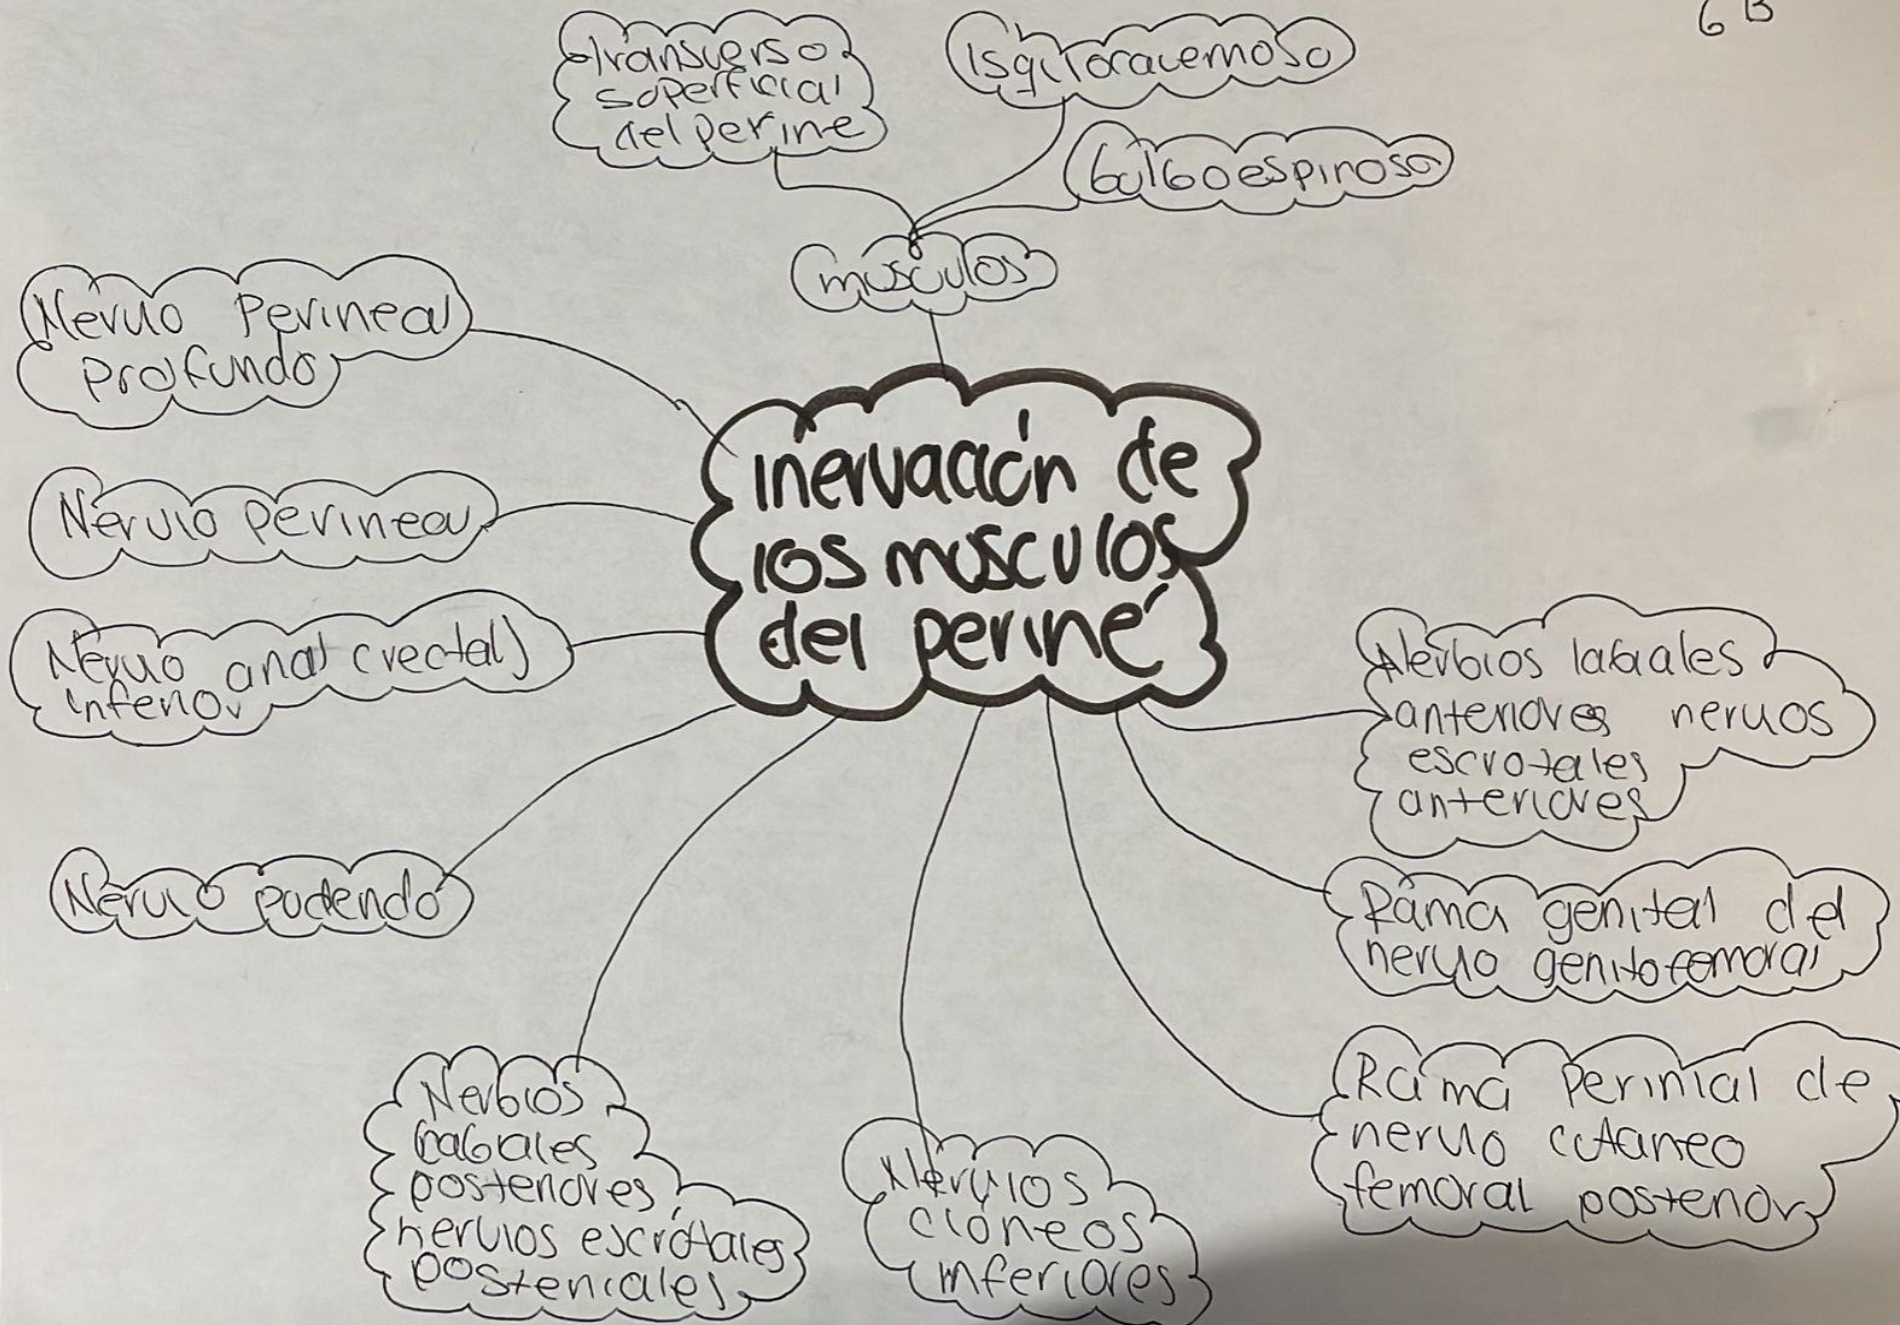 6 B
transverso
superficial
del perine
isquiocavernoso
bulboespinoso
musculos
Nervio Perineal
profundo
Nervio perineal
Nervio anal (rectal)
inferior
Nervio pudendo
inervación de
los musculos
del periné
Nerbios labiales
anteriores nervios
escrotales
anteriores
Rama genital del
nervio genitofemoral
Rama Perinial de
nervio cutaneo
femoral posterior
Nerbios
labiales
posteriores,
nervios escrotales
posteriales
Nervios
cloneos
inferiores